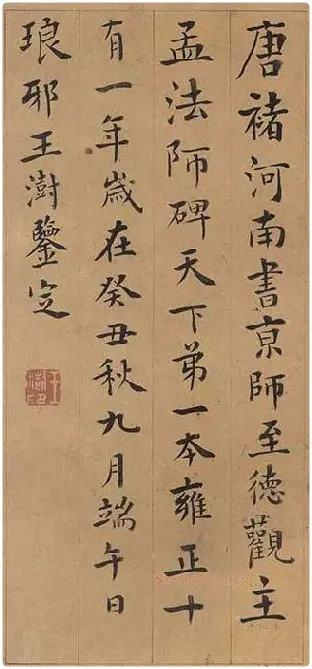 唐褚河南書京師至德觀主
孟法師碑天下弟一本雍正十
有一年歲在癸丑秋九月端午日
琅邪王澍鑒定